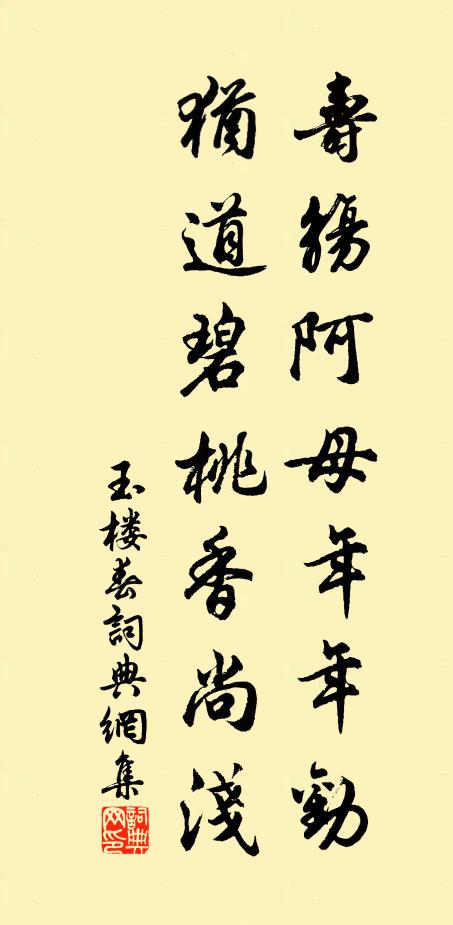 壽觴阿母年年勸
猶道碧桃香尚淺
玉楼春詞典網集
詞典網印